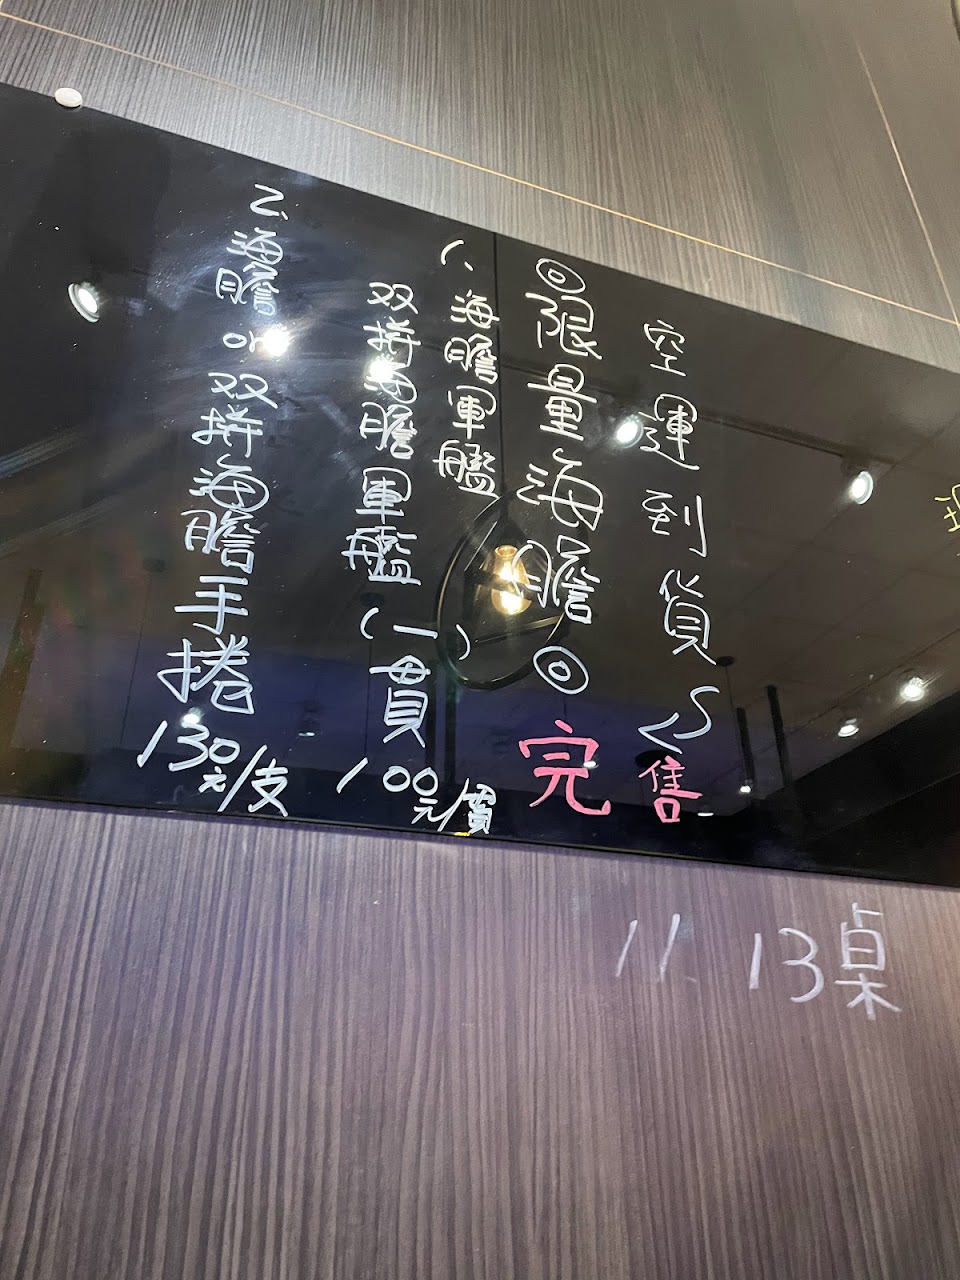 空運到貨~售
◎限量海膽◎完
1、海膽軍艦
双拼海膽軍艦(一貫)100元/貫
2、海膽or双拼海膽手捲130元/支
11、13桌